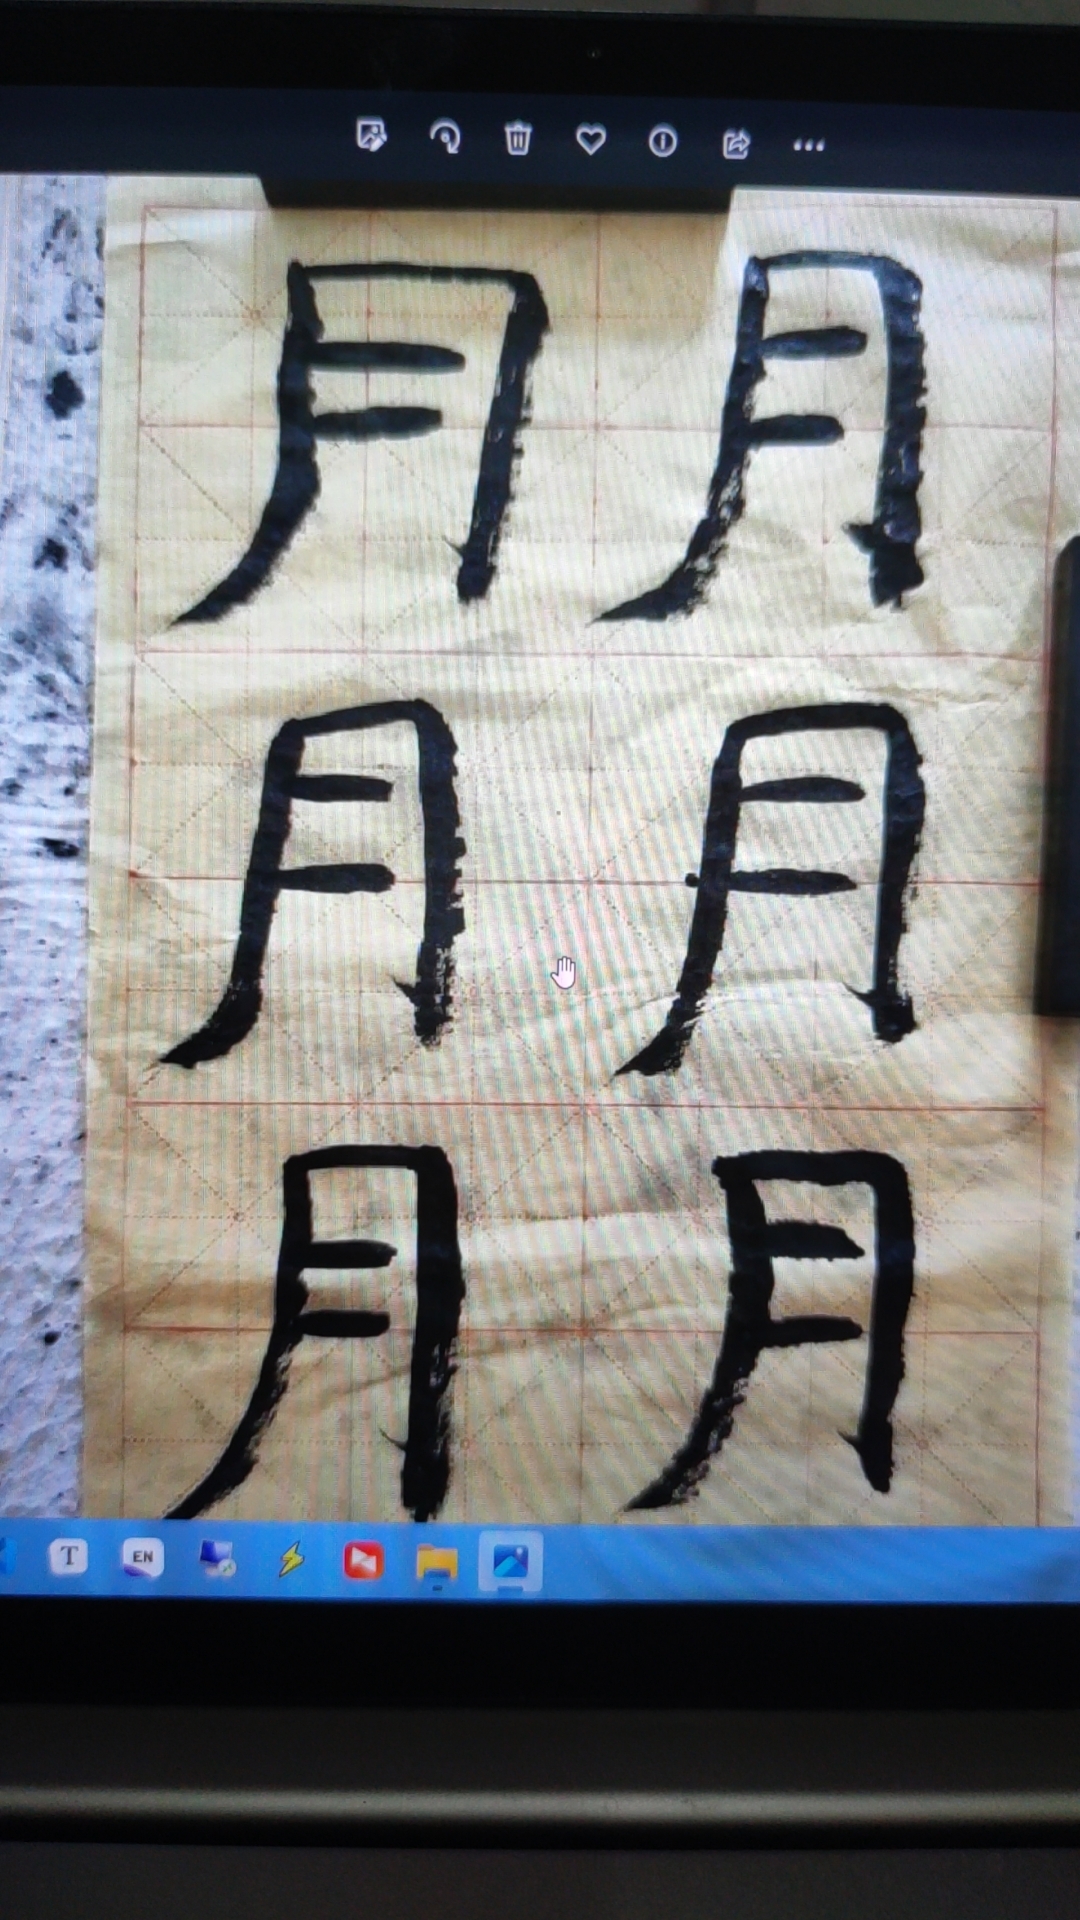 月 月
月 月
月 月
T EN